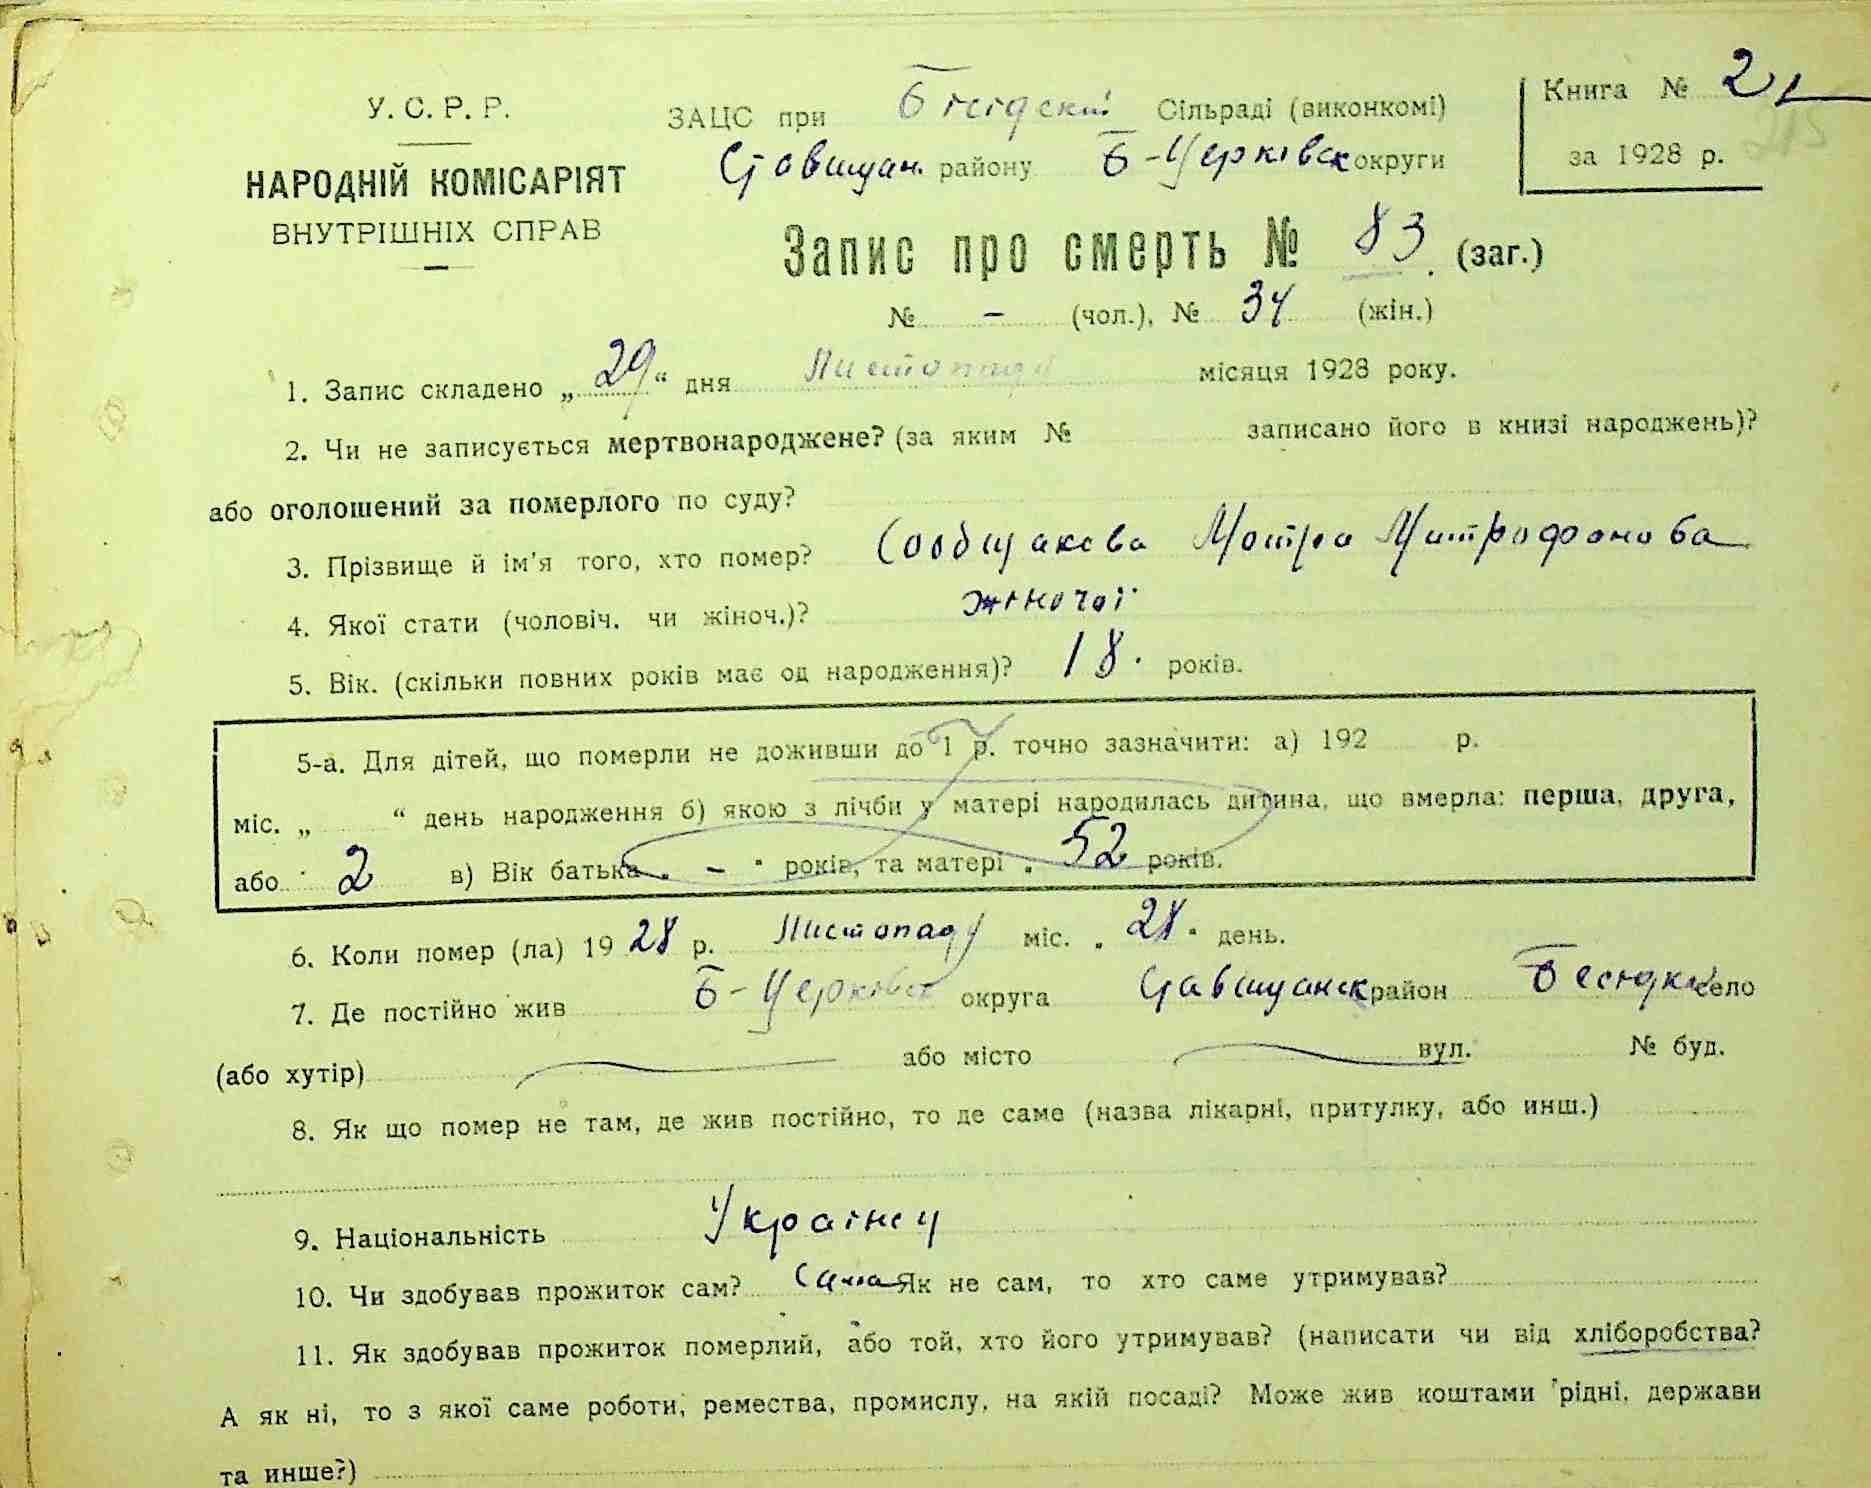 У. С. Р. Р.
НАРОДНІЙ КОМІСАРІЯТ
ВНУТРІШНІХ СПРАВ
ЗАЦС при Бесідскі Сільраді (виконкомі)
Ставищан. району Б-Церківск округи
Книга № 2
за 1928 р.
Запис про смерть № 83 (заг.)
№ - (чол.), № 34 (жін.)
1. Запис складено „29“ дня Листопаду місяця 1928 року.
2. Чи не записується мертвонароджене? (за яким № записано його в книзі народжень)?
або оголошений за померлого по суду?
3. Прізвище й ім'я того, хто помер? Мотра Митрофонова
4. Якої стати (чоловіч. чи жіноч.)? жіночої
5. Вік. (скільки повних років має од народження)? 18. років.
5-а. Для дітей, що померли не доживши до 1 р. точно зазначити: а) 192 р.
міс. „ “ день народження б) якою з лічби у матері народилась дитина, що вмерла: перша, друга,
або 2 в) Вік батька „ - “ років, та матері „ 52 років.
6. Коли помер (ла) 1928 р. Листопаду міс. „ 28 “ день.
7. Де постійно жив Б-Церківск округа Ставищанск район Бесідка село
(або хутір) або місто вул. № буд.
8. Як що помер не там, де жив постійно, то де саме (назва лікарні, притулку, або инш.)
9. Національність Українц
10. Чи здобував прожиток сам? Сама Як не сам, то хто саме утримував?
11. Як здобував прожиток померлий, або той, хто його утримував? (написати чи від хліборобства?
А як ні, то з якої саме роботи, ремества, промислу, на якій посаді? Може жив коштами рідні, держави
та инше?)